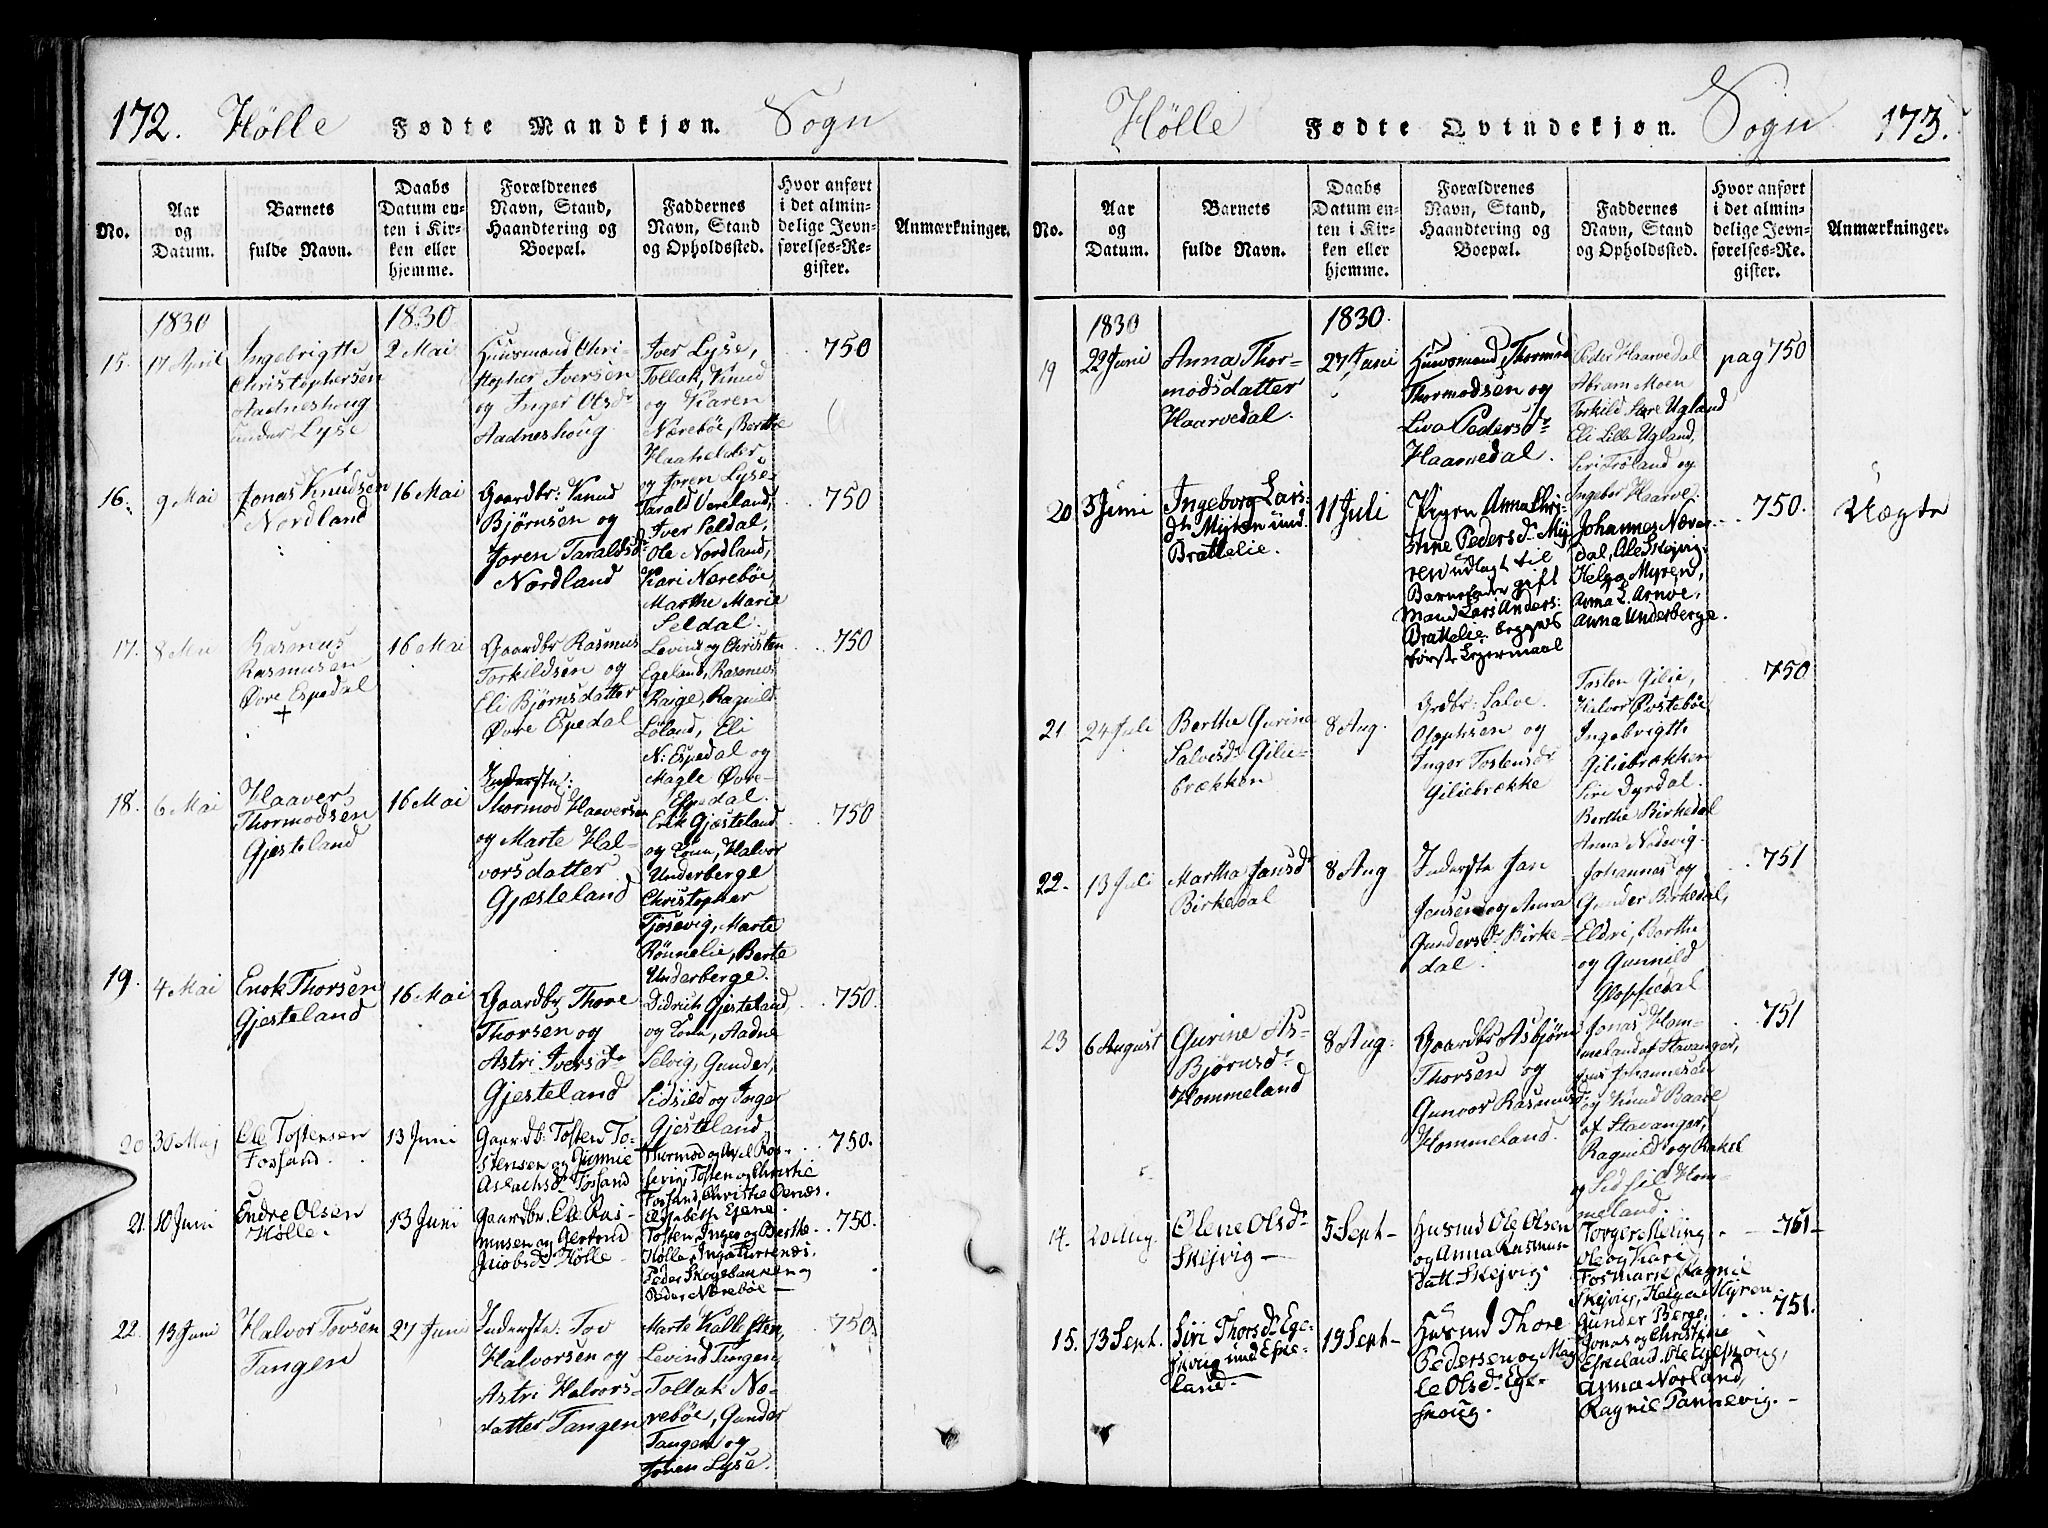 172. Hölle Fødte Mandkjøn. Sogn
No.
Aar
og
Datum.
Barnets
fulde Navn.
Daabs
Datum en-
ten i Kir-
ken eller
hjemme.
Forældrenes
Navn, Stand,
Haandtering og
Boepæl.
Faddernes
Navn, Stand
og Opholdssted.
Hvor anført
i det almin-
delige Jevn-
førelses-Re-
gister.
Anmærkninger.
1830
1830
15.
17 April
Ingebrigth
Christophersen
Aadneshoug
under Lyse
2 Mai
Huusmand Chri-
stopher Iversen
og Inger Olsdr
Aadneshoug
Iver Lyse,
Tollak, Knud
og Karen
Nærebøe, Berthe
Haahelder
og Joren Lyse
750
16.
9 Mai
Jonas Knudsen
Nordland
16 Mai
Gaardbr: Knud
Bjørnsen og
Joren Taraldsdr
Nordland
Tarald Vereland,
Iver Seldal,
Ole Nordland,
Kari Nærebøe,
Marthe Marie
Seldal.
750
17.
8 Mai
Rasmus
Rasmusen
Øvre Espedal
+
16 Mai
Gaardbr Rasmus
Torkildsen og
Eli Bjørnsdatter
Øvre Espedal
Levind og Christen
Egeland, Rasmus
Raige, Ragnild
Løland, Eli
N: Espedal og
Magle Øvre-
Espedal.
750
18.
6 Mai
Haaver
Thormodsen
Gjesteland
16 Mai
Inderste:
Thormod Haaversen
og Marte Hal-
vorsdatter
Gjæsteland
Erik Gjæsteland
og Kone, Halvor
Underberge
Christopher
Tjøsevig, Marte
Rönnelie, Berte
Underberge.
750
19.
4 Mai
Enok Thorsen
Gjesteland
16 Mai
Gaardbr Thore
Thorsen og
Astri Iversdr
Gjesteland
Didrich Gjesteland
og Kone, Aadne
Selvig, Gunder,
Sidsild og Inger
Gjesteland
750
20
30 Maj
Ole Tostensen
Fossand.
13 Juni
Gaardb: Tosten To-
stensen og Gunnie
Aslachsdr Fossand
Thormod og Axel Ros-
sevig, Tosten og Christie
Fossand, Christie Oenæs.
Elisabeth Ejene.
750.
21.
10 Juni
Endre Olsen
Hølle.
13 Juni
Gaardbr. Ole Ras-
musen og Gertrud
Jacobsdr Hølle
Tosten, Inger og Berthe
Hølle, Inga Furrenæs.
Peder Skogebanken og
Peder Nærebøe
750.
22.
13 Juni
Halvor Tovsen
Tangen
27 Juni
Inderste: Tov
Halvorsen og
Astri Halvors-
datter Tangen
Marte Kallesten,
Levind Tangen,
Tollak Næ-
rebøe, Gunder
Tangen og
Joren Lyse.
750.
Hölle Fødte Qvindekjøn. Sogn 173.
No.
Aar
og
Datum.
Barnets
fulde Navn.
Daabs
Datum en-
ten i Kir-
ken eller
hjemme.
Forældrenes
Navn, Stand,
Haandtering og
Boepæl.
Faddernes
Navn, Stand
og Opholdssted.
Hvor anført
i det almin-
delige Jevn-
førelses-Re-
gister.
Anmærkninger.
1830
1830.
19
22 Juni
Anna Thor-
modsdatter
Haarvedal.
27 Juni
Huusmand Thormod
Thormodsen og
Liva Pedersdr
Haarvedal.
Peder Haarvedal
Abram Moen
Torkild Støre Ugland
Eli Lille Ugland,
Siri Frøland og
Ingebor Haarve.
pag 750
20
5 Juni
Ingeborg Lars-
dr Myren und.
Brattelie.
11 Juli
Pigen Anna Chri-
stine Pedersdr My-
ren udlagt til
Barnefader gift
Mand Lars Anders:
Brattelie. begges
første Lejermaal
Johannes Næver-
dal, Ole Skejvig,
Helga Myren,
Anna L. Arnøe,
Anna Underberge.
750.
Uægte
21
24 Juli
Berthe Gurine
Salvesdr Gilie-
brækken
8 Aug.
Grdbr: Salve
Osophsen og
Inger Tostensdr
Giliebrække
Tosten Gilje,
Halvor Østebøe
Ingebrigth
Giliebrækken
Siri Dyrdal.
Berthe Birkedal
Anna Nodevig.
750
22.
13 Juli
Martha Jansdr
Birkedal
8 Aug
Inderste Jan
Jensen og Anna
Gundersdr Birke-
dal.
Johannas og
Gunder Birkedal,
Eldri, Berthe
og Gunnild
Gloppedal
751
23
6 August
Gurine As-
Bjørnsdr
Hommeland
8 Aug:
Gaardbr Asbjørn
Thorsen og
Gunvor Rasmusdr
Hommeland.
Jonas Hom-
meland af Stavanger,
Jens Johannesen
og Knud Baade
af Stavanger,
Ragnild og Rakel
og Sidsil Hom-
meland.
751
14.
20 Aug.
Olene Olsdr
Skejvig
5 Sept
Husmd Ole Olsen
og Anna Rasmus-
datt. Skejvig.
Torger Meling
Ole og Kari
Fosmark, Ragnil
Skejvig, Helga Myren
751
15.
13 Sept.
Siri Thorsdr Ege-
skoug und Eske-
land.
19 Sept
Husmd Thore
Pedersen og Mag-
le Olsdr Ege-
skoug.
Gunder Berge,
Jonas og Christine
Eskeland, Ole Egeskoug,
Anna Norland,
Ragnil Tannevig.
751.